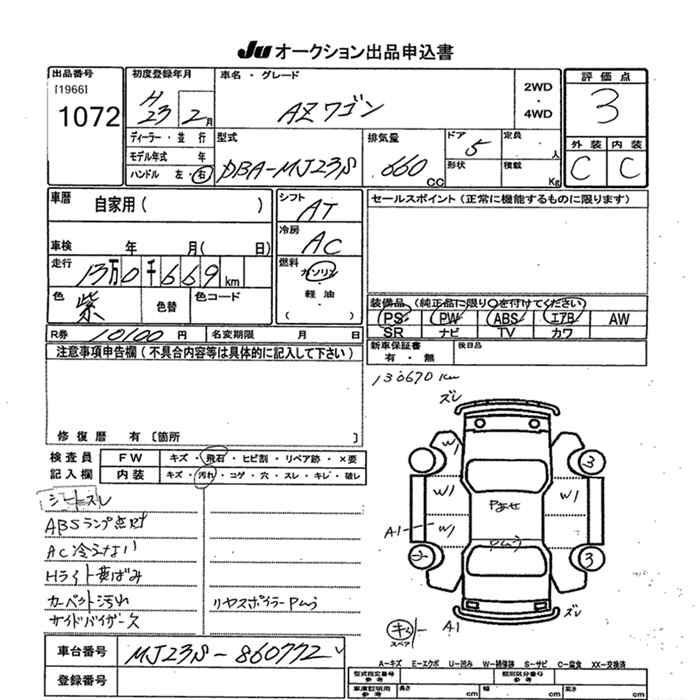 Ju オークション出品申込書
出品番号
[1966]
1072
初度登録年月
H23 2月
ディーラー・並行
モデル年式 年
ハンドル 左・右
車名・グレード
AZワゴン
2WD
・
4WD
型式
DBA-MJ23S
排気量
660 CC
ドア 5
形状
定員 人
積載 Kg
評価点
3
外装 内装
C C
車歴
自家用( )
車検 年 月( 日)
走行
13万0千669km
色
紫
色替
色コード
シフト
AT
冷房
AC
燃料
ガソリン
・
軽油
( )
セールスポイント(正常に機能するものに限ります)
装備品(純正品に限り○を付けてください)
PS PW ABS エアB AW
SR ナビ TV カワ
R券 10100円 名変期限 月 日
新車保証書
有・無
後日品
注意事項申告欄(不具合内容等は具体的に記入して下さい)
修復歴 有 〔箇所 〕
130670km
検査員
記入欄
FW キズ・飛石・ヒビ割・リペア跡・×要
内装 キズ・汚れ・コゲ・穴・スレ・キレ・破レ
シートスレ
ABSランプ点灯
AC冷えない
Hライト黄ばみ
カーペット汚れ
サイドバイザーズ
リヤスポイラーPムラ
ズレ
W1
3
W1
W1
A1
W1
3
Pムラ
ズレ
A1
スペア
車台番号
MJ23S-860772
登録番号
A-キズ E-エクボ U-凹み W-補修跡 S-サビ C-腐食 XX-交換済
型式指定番号
参考
類別区分番号
参考
車庫証明用
参考
長さ cm 幅 cm 高さ cm